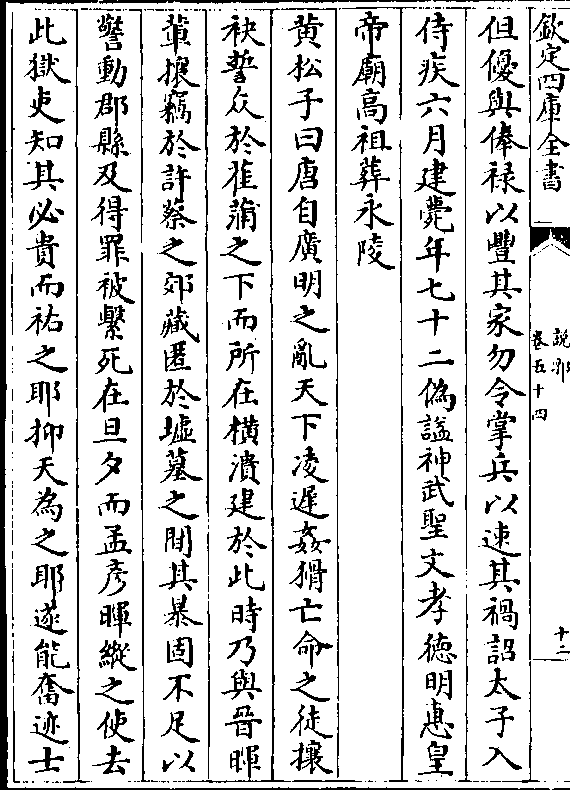 欽定四庫全書
說郛
卷五十四
十二
但優與俸禄以豐其家勿令掌兵以速其禍詔太子入
侍疾六月建薨年七十二偽諡神武聖文孝德明惠皇
帝廟高祖葬永陵
黄松子曰唐自廣明之亂天下凌遲姦猾亡命之徒攘
袂誓众於萑蒲之下而所在横潰建於此時乃與晉暉
輩攘竊於許蔡之郊藏匿於墟墓之間其暴固不足以
警動郡縣及得罪被繫死在旦夕而孟彦暉縱之使去
此獄吏知其必貴而祐之耶抑天為之耶遂能奮迹士